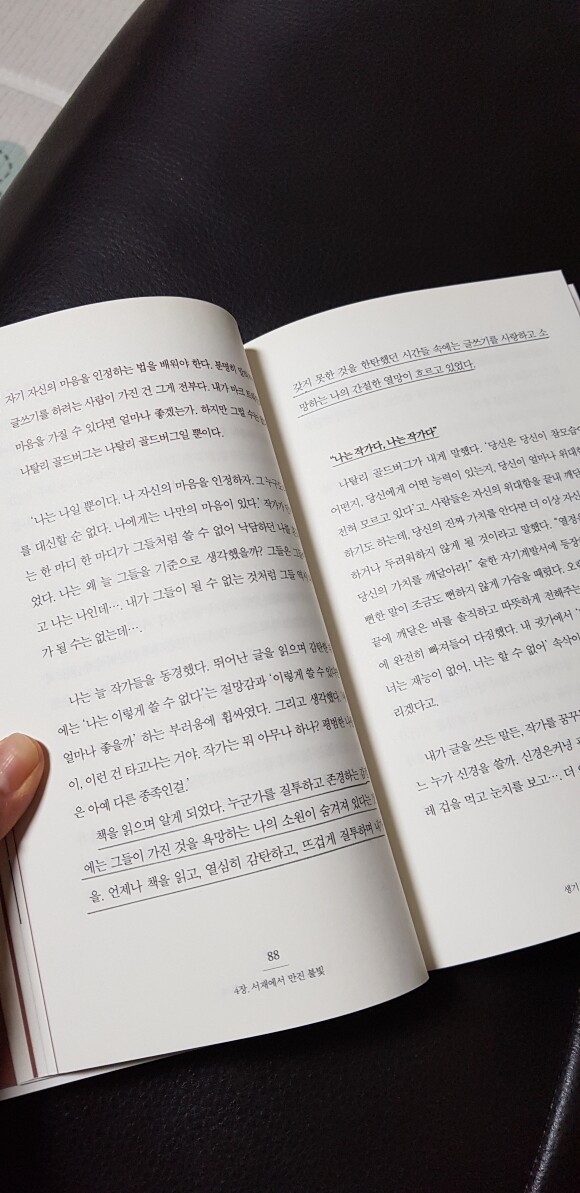 자기 자신의 마음을 인정하는 법을 배워야 한다. 분명히
글쓰기를 하려는 사람이 가진 건 그게 전부다. 내가 마크
마음을 가질 수 있다면 얼마나 좋겠는가. 하지만 그럴 수는
나탈리 골드버그는 나탈리 골드버그일 뿐이다.
‘나는 나일 뿐이다. 나 자신의 마음을 인정하자. 그 누구도
를 대신할 순 없다. 나에게는 나만의 마음이 있다.’ 작가가
는 한 마디 한 마디가 그들처럼 쓸 수 없어 낙담하던 나를
었다. 나는 왜 늘 그들을 기준으로 생각했을까? 그들은
고 나는 나인데…. 내가 그들이 될 수 없는 것처럼 그들 역시
가 될 수는 없는데….
나는 늘 작가들을 동경했다. 뛰어난 글을 읽으며 감탄한
에는 ‘나는 이렇게 쓸 수 없다’는 절망감과 ‘이렇게 쓸 수 있다면
얼마나 좋을까’ 하는 부러움에 휩싸였다. 그리고 생각했다.
이, 이런 건 타고나는 거야. 작가는 뭐 아무나 하나? 평범한
은 아예 다른 종족인걸.’
책을 읽으며 알게 되었다. 누군가를 질투하고 존경하는
에는 그들이 가진 것을 욕망하는 나의 소원이 숨겨져 있다는
을. 언제나 책을 읽고, 열심히 감탄하고, 뜨겁게 질투하며
88
4장. 서재에서 만진 불빛
갖지 못한 것을 한탄했던 시간들 속에는 글쓰기를 사랑하고 소
망하는 나의 간절한 열망이 흐르고 있었다.
“나는 작가다, 나는 작가다”
나탈리 골드버그가 내게 말했다. ‘당신은 당신이 참모습이
어떤지, 당신에게 어떤 능력이 있는지, 당신이 얼마나 위대한
전혀 모르고 있다’고. 사람들은 자신의 위대함을 끝내 깨닫
하기도 하는데, 당신의 진짜 가치를 안다면 더 이상 자신
하거나 두려워하지 않게 될 것이라고 말했다. “열정을
당신의 가치를 깨달아라!” 숱한 자기계발서에 등장
뻔한 말이 조금도 뻔하지 않게 가슴을 때렸다. 오랜
끝에 깨달은 바를 솔직하고 따뜻하게 전해주는
에 완전히 빠져들어 다짐했다. 내 귓가에서 ‘
너는 재능이 없어, 너는 할 수 없어’ 속삭이
리겠다고.
내가 글을 쓰든 말든, 작가를 꿈꾸
느 누가 신경을 쓸까. 신경은커녕
레 겁을 먹고 눈치를 보고…. 더
생기